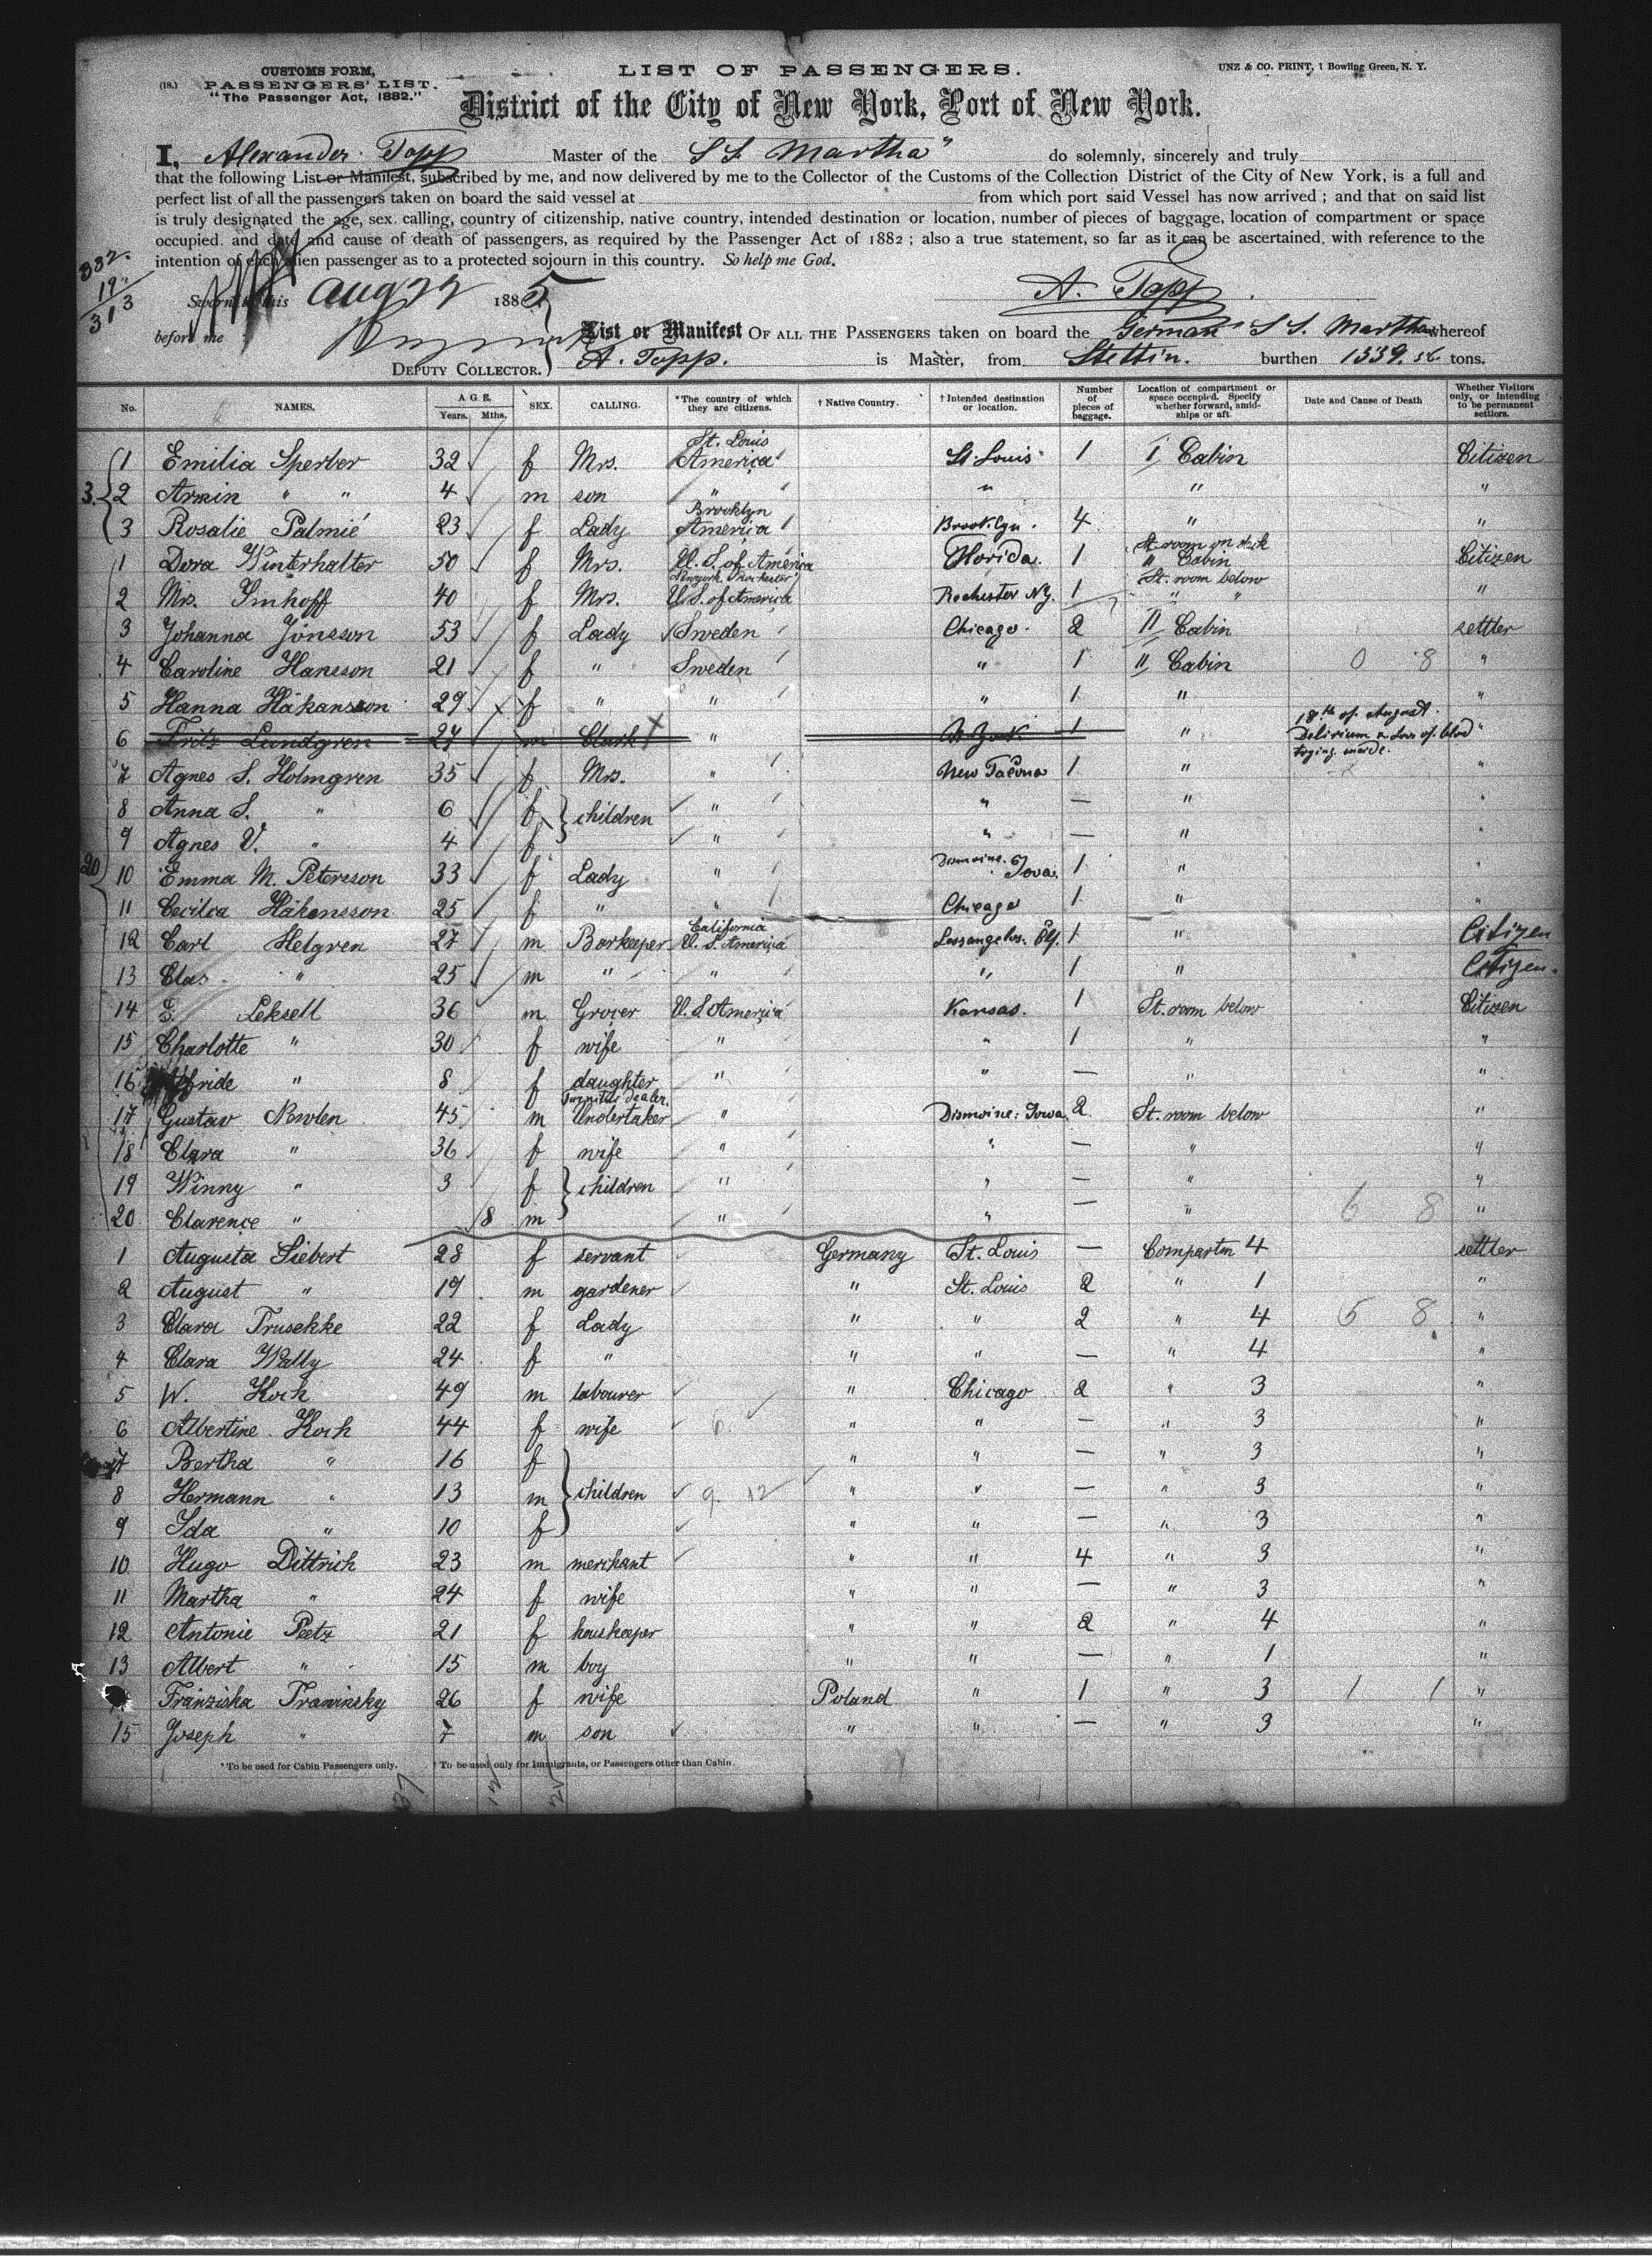 CUSTOMS FORM,
(18.) PASSENGERS' LIST.
"The Passenger Act, 1882."
LIST OF PASSENGERS.
UNZ & CO. PRINT, 1 Bowling Green, N. Y.
District of the City of New York, Port of New York.
I, Alexander Topp Master of the S S Martha" do solemnly, sincerely and truly
that the following List or Manifest, subscribed by me, and now delivered by me to the Collector of the Customs of the Collection District of the City of New York, is a full and
perfect list of all the passengers taken on board the said vessel at from which port said Vessel has now arrived ; and that on said list
is truly designated the age, sex, calling, country of citizenship, native country, intended destination or location, number of pieces of baggage, location of compartment or space
occupied, and date and cause of death of passengers, as required by the Passenger Act of 1882 ; also a true statement, so far as it can be ascertained, with reference to the
intention of each alien passenger as to a protected sojourn in this country. So help me God.
332.
19
313
Sworn to this Aug 22 1885
A. Topp
before me
List or Manifest OF ALL THE PASSENGERS taken on board the German S S. Martha whereof
DEPUTY COLLECTOR. A. Topp. is Master, from Stettin. burthen 1339.56 tons.
No. NAMES. AGE. Years. Mths. SEX. CALLING. *The country of which they are citizens. † Native Country. † Intended destination or location. Number of pieces of baggage. Location of compartment or space occupied. Specify whether forward, amidships or aft. Date and Cause of Death Whether Visitors only, or intending to be permanent settlers.
1 Emilia Sperber 32 f Mrs. St. Louis America St. Louis 1 I Cabin Citizen
3. 2 Armin " " 4 m son " " " "
3 Rosalie Palmié 23 f Lady Brooklyn America Brooklyn. 4 " "
1 Dora Winterhalter 50 f Mrs. U. S. of America Florida. 1 St. room on deck " Cabin Citizen
2 Mrs. Imhoff 40 f Mrs. Newyork Rochester U. S. of America Rochester NY. 1 St. room below " " "
3 Johanna Jönsson 53 f Lady Sweden Chicago. 2 II Cabin settler
4 Caroline Hansson 21 f " Sweden " 1 II Cabin 0 8 "
5 Hanna Håkansson 29 f " " " 1 " "
6 Fritz Lundgren 27 m Clerk " N. York 1 " 18th of August. Delirium & loss of blood "
7 Agnes S. Holmgren 35 f Mrs. " New Tacoma 1 " "
8 Anna S. " 6 f children " " — " "
9 Agnes V. " 4 f " " — " "
20 10 Emma M. Petersson 33 f Lady " Dismoine. Iowa. 1 " "
11 Cecilia Håkansson 25 f " " Chicago 1 " "
12 Carl Helgren 27 m Barkeeper California U. S. America Lossangelos. Clf. 1 " Citizen
13 Clas " 25 m " " " 1 " Citizen.
14 E. Leksell 36 m Grocer U. S America Kansas. 1 St. room below Citizen
15 Charlotte " 30 f wife " " 1 " "
16 " 8 f daughter " " — " "
17 Gustav Newlen 45 m Furniture dealer. Undertaker " Dismoine: Iowa. 2 St. room below "
18 Clara " 36 f wife " " — " "
19 Winny " 3 f children " " — " "
20 Clarence " 8 m " " — " 6 8 "
1 Augusta Siebert 28 f servant Germany St. Louis — Compartm 4 settler
2 August " 19 m gardener " St. Louis 2 " 1 "
3 Clara Trusekke 22 f Lady " " 2 " 4 5 8 "
4 Clara Wally 24 f " " " — " 4 "
5 W. Koch 49 m labourer " Chicago 2 " 3 "
6 Albertine Koch 44 f wife 6. " " — " 3 "
7 Bertha " 16 f " " — " 3 "
8 Hermann " 13 m children 9. 12 " " — " 3 "
9 Ida " 10 f " " — " 3 "
10 Hugo Dittrich 23 m merchant " " 4 " 3 "
11 Martha " 24 f wife " " — " 3 "
12 Antonie Peetz 21 f houskeeper " " 2 " 4 "
13 Albert " 15 m boy " " — " 1 "
Franziska Trawinsky 26 f wife Poland " 1 " 3 1 1 "
15 Joseph " 7 m son " " — " 3 "
* To be used for Cabin Passengers only. † To be used only for Immigrants, or Passengers other than Cabin.